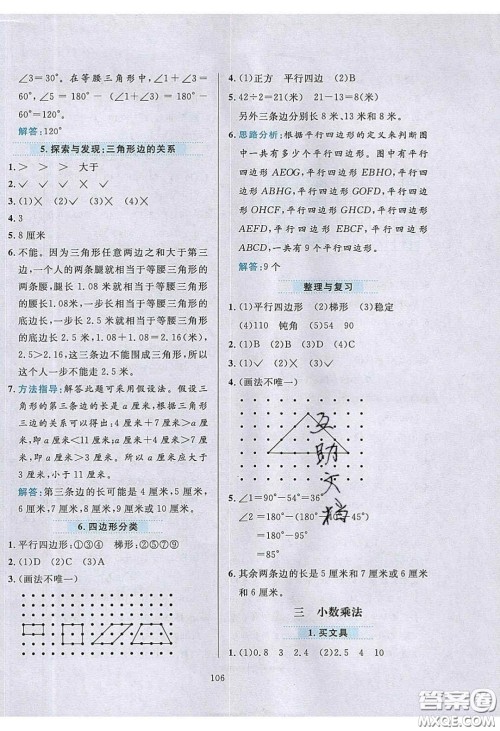 ∠3=30°。在等腰三角形中,∠1+∠3
=60°,∠2=180°-(∠1+∠3)=180°
-60°=120°。
解答:120°
5.探索与发现:三角形边的关系
1.> > > 大于
2.✓ ✓ ✓ ✓
3.(1)X (2)X (3)✓ (4)X
4.3
5.8厘米
6.不能。因为三角形任意两边之和大于第三
边,一个人的两条腿就相当于等腰三角形
的两条腰,步长就相当于等腰三角形的底
边。腰长1.08米就相当于等腰三角形的
的腰长1.08米,步长2.5米就相当于
底边长,1.08+1.08=2.16(米),
2.5>2.16,这三条边不能围成三角形,所
以这个人一步不能走2.5米。
7.方法指导:解答此题可采用假设法。假设三
角形的第三条边的长是a厘米,根据三角形
三边的关系可以得出:4厘米+7厘米>a厘
米,即a厘米<11厘米;a厘米+4厘米>7厘
米,即a厘米>3厘米,所以a厘米要大于3
厘米,小于11厘米。
解答:第三条边的长可能是4厘米,5厘米,
6厘米,7厘米,8厘米,9厘米,10厘米。
6.四边形分类
1.平行四边形:①③④ 梯形:②⑤⑦⑨
2.(1)D (2)C (3)B (4)A
3.(画法不唯一)
4.(1)正方 平行四边 (2)B
5.42÷2=21(米) 21-13=8(米)
另外三条边分别长8米、13米和8米。
6.思路分析:根据平行四边形的定义来判断图
中一共有多少个平行四边形。图中有平行
四边形AEOG,平行四边形EBHO,平行四
边形ABHG,平行四边形GOFD,平行四边形
OHCF,平行四边形GHCD,平行四边形
AEFD,平行四边形EBCF,平行四边形
ABCD,一共有9个平行四边形。
解答:9个
整理与复习
1.(1)平行四边形 (2)梯形 (3)稳定
(4)110 钝角 (5)2.4
2.(1)B (2)C (3)C
3.(1)✓ (2)X (3)✓ (4)✓
4.(画法不唯一)
互
助
灭
档
5.∠1=90°-54°=36°
∠2=180°-(180°- -45°)
=180°-95°
=85°
6.其余两条边的长是5厘米和5厘米或6厘米
和6厘米。
三 小数乘法
1.买文具
1.(1)0.8 3 2.4 (2)2.5 4 10
106
答案圈
MXQE.COM